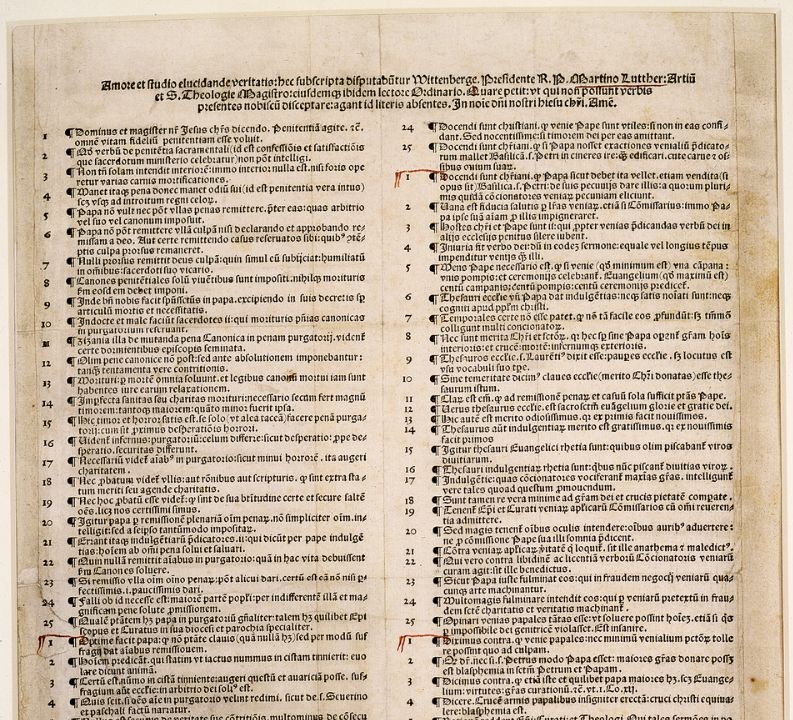 Amore et studio elucidande veritatis: hec subscripta disputabūtur Wittenberge. Presidente R. P. Martino Lutther: Artiū
et S. Theologie Magistro: eiusdemqȝ ibidem lectore Ordinario. Quare petit: vt qui non possunt verbis
presentes nobiscū disceptare: agant id literis absentes. In noīe dn̄i nostri hiesu chr̄i. Amē.
1 ¶ Dominus et magister nr̄ Jesus chr̄s dicendo. Penitentiā agite. ⁊c.
omnē vitam fideliū penitentiam esse voluit.
2 ¶ Qd̄ verbū de penitētia sacramentali (id est confessiōis et satisfactiōis
que sacerdotum ministerio celebratur) non pōt intelligi.
3 ¶ Non tn̄ solam intendit interiorē: immo interior nulla est. nisi foris ope
retur varias carnis mortificationes.
4 ¶ Manet itaqȝ pena donec manet odiū sui (id est penitentia vera intus)
scȝ vsqȝ ad introitum regni celorum.
5 ¶ Papa nō vult nec pōt vllas penas remittere. p̄ter eas: quas arbitrio
vel suo vel canonum imposuit.
6 ¶ Papa nō pōt remittere vllā culpā nisi declarando et approbando re-
missam a deo. Aut certe remittendo casus reseruatos sibi: quibꝰ ɔtēp-
tis culpa prorsus remaneret.
7 ¶ Nulli prorsus remittit deus culpā: quin simul eū subijciat: humiliatū
in om̄ibus: sacerdoti suo vicario.
8 ¶ Canones penitētiales solū viuētibus sunt impositi. nihilqȝ morituris
ꝑm eosdem debet imponi.
9 ¶ Inde bn̄ nobis facit sp̄ussctūs in papa. excipiendo in suis decretis sp̄
articulū mortis et necessitatis.
10 ¶ Indocte et male faciūt sacerdotes ii: qui morituris p̄nias canonicas
in purgatorium reseruant.
11 ¶ Zizania illa de mutanda pena Canonica in penam purgatorij. vident̄
certe dormientibus episcopis seminata.
12 ¶ Olim pene canonice nō post: sed ante absolutionem imponebantur:
tanqȝ tentamenta vere contritionis.
13 ¶ Morituri: ꝑ mortē omnia soluunt. et legibus canonū mortui iam sunt
habentes iure earum relaxationem.
14 ¶ Imperfecta sanitas seu charitas morituri: necessario secum fert magnū
timorem: tantoqȝ maiorem: quāto minor fuerit ipsa.
15 ¶ Hic timor et horror: satis est. se solo (vt alia taceā) facere penā purga-
torij: cum sit ꝓximus desperatiōis horrori.
16 ¶ Vident̄ infernus: purgatoriū: celum differre: sicut desperatio: ꝓpe de-
speratio. securitas differunt.
17 ¶ Necessariū videt̄ aīabꝰ in purgatorio: sicut minui horrorē. ita augeri
charitatem.
18 ¶ Nec ꝓbatum videt̄ vllis: aut rōnibus aut scripturis. qꝙ sint extra sta-
tum meriti seu agende charitatis.
19 ¶ Nec hoc ꝓbatū esse videt̄: qꝙ sint de sua btītudine certe et secure saltē
oēs. licȝ nos certissimi simus.
20 ¶ Igitur papa ꝑ remissionē plenariā oīm penaꝝ. nō simpliciter oīm. in-
telligit: sed a seipso tantūmodo impositaꝝ.
21 ¶ Errant itaqȝ indulgētiaꝝ p̄dicatores. ii: qui dicūt per pape indulgē
tias: hoīem ab oīni pena solui et saluari.
22 ¶ Quin nullā remittit aīabus in purgatorio: quā in hac vita debuissent
ꝑm Canones soluere.
23 ¶ Si remissio vlla oīm oīno penaꝝ: pōt alicui dari. certū est eā nō nisi ꝑ-
fectissimis. i. paucissimis dari.
24 ¶ Falli ob id necesse est: maiorē partē popl̄i: per indifferentē illā et ma-
gnificam pene solute ꝓmissionem.
25 ¶ Qualē ptātem hȝ papa in purgatoriū gn̄aliter: talem hȝ quilibet Epi
scopus et Curatus in sua diocesi et parochia specialiter.
1 ¶ Optime facit papa: qꝙ nō ptāte clauis (quā nullā hȝ) sed per modū suf
fragij dat aīabus remissionem.
2 ¶ Hoīem predicāt. qui statim vt iactus nummus in cistam tinnierit: euo
lare dicunt animā.
3 ¶ Certū est. nūmo in cistā tinniente: augeri questū et auariciā posse. suf-
fragium aūt ecclīe: in arbitrio dei soliꝰ est.
4 ¶ Quis scit. si oēs aīe in purgatorio velint redimi. sicut de s. Seuerino
et paschali factū narratur.
24 ¶ Docendi sunt christiani. qꝙ venie Pape sunt vtiles: si non in eas confi-
dant. Sed nocentissime: si timorem dei per eas amittant.
25 ¶ Docendi sunt chr̄iani. qꝙ si Papa nosset exactiones venialiū p̄dicato-
rum mallet Basilicā. s. Petri in cineres ire: qȝ edificari. cute carne ⁊ os-
sibus ouium suaꝝ.
1 ¶ Docendi sunt chr̄iani. qꝙ Papa sicut debet ita vellet. etiam vendita (si
opus sit) Basilica. s. Petri: de suis pecunijs dare illis: a quorum pluri-
mis quidā cōcionatores veniaꝝ pecuniam eliciunt.
2 ¶ Vana est fiducia salutis ꝑ lr̄as veniaꝝ. etiā si Cōmissarius: immo Pa-
pa ipse suā aīam ꝓ illis impigneraret.
3 ¶ Hostes chr̄i et Pape sunt ii: qui ꝓpter venias p̄dicandas verbū dei in
alijs ecclesijs penitus silere iubent.
4 ¶ Iniuria fit verbo dei: dū in eodeȝ sermone: equale vel longius tēpus
impenditur venijs qȝ illi.
5 ¶ Mens Pape necessario est. qꝙ si venie (qd̄ minimum est) vna cāpana:
vnis pompis: et ceremonijs celebrant̄. Euangelium (qd̄ maximū est)
centū campanis: centū pompis: centū ceremonijs predicet̄.
6 ¶ Thesauri ecclīe vn̄ Papa dat indulgētias: neqȝ satis noīati sunt: neqȝ
cogniti apud ppl̄m chr̄i.
7 ¶ Temporales certe nō esse patet. qꝙ nō tā facile eos ꝓfundūt: sȝ tm̄mō
colligunt multi concionatorum.
8 ¶ Nec sunt merita Chr̄i et sctōꝝ. qꝙ hec sp̄ sine Papa opan̄t gr̄am hoīs
interioris: et crucē: mortē: infernumqȝ exterioris.
9 ¶ Thesauros ecclīe. s. Laurētiꝰ dixit esse: pauperes ecclīe. sȝ locutus est
vsu vocabuli suo tꝑe.
10 ¶ Sine temeritate dicimꝰ claues ecclīe (merito Chr̄i donatas) esse the-
saurum istum.
11 ¶ Claꝝ est em̄. qꝙ ad remissionē penaꝝ et casuū sola sufficit ptās Pape.
12 ¶ Verus thesaurus ecclīe. est sacrosctm̄ euāgelium glorie et gratie dei.
13 ¶ Hic autē est merito odiosissimus. qꝙ ex primis facit nouissimos.
14 ¶ Thesaurus aūt indulgentiaꝝ merito est gratissimus. qꝙ ex nouissimis
facit primos
15 ¶ Igitur thesauri Euangelici rhetia sunt: quibus olim piscabant̄ viros
diuitiarum.
16 ¶ Thesauri indulgentiaꝝ rhetia sunt: qbus nūc piscant̄ diuitias viroꝝ.
17 ¶ Indulgētie: quas cōcionatores vociferant̄ maxīas gr̄as. intelligunt̄
vere tales quoad questum ꝓmouendum.
18 ¶ Sunt tamen re vera minime ad gr̄am dei et crucis pietatē compate.
19 ¶ Tenent̄ Epi et Curati veniaꝝ aplicarū Cōmissarios cū oīni reueren-
tia admittere.
20 ¶ Sed magis tenent̄ oībus oculis intendere: oībus auribꝰ aduertere:
ne ꝓ cōmissione Pape sua illi somnia p̄dicent.
21 ¶ Cōtra veniaꝝ aplicaꝝ v̄itatē q̄ loquit̄. sit ille anathema ⁊ maledictꝰ.
22 ¶ Qui vero contra libidinē ac licentiā verborū Cōcionatoris veniarū
curam agit: sit ille benedictus.
23 ¶ Sicut Papa iuste fulminat eos: qui in fraudem negocij veniarū qua-
cunqȝ arte machinantur.
24 ¶ Multomagis fulminare intendit eos: qui ꝑ veniarū pretextū in frau-
dem sctē charitatis et veritatis machinant̄.
25 ¶ Opinari venias papales tātas esse: vt soluere possint hoīeȝ. etiā si qs
ꝑ impossibile dei genitricē violasset. Est insanire.
1 ¶ Diximus contra. qꝙ venie papales: nec minimū venialium pctōꝝ tolle
re possint quo ad culpam.
2 ¶ Qd̄ dr̄. nec si. s. Petrus modo Papa esset: maiores gr̄as donare possȝ
est blasphemia in sctm̄ Petrum et Papam.
3 ¶ Dicimus contra. qꝙ etiā iste et quilibet papa maiores hȝ. scȝ Euange-
lium: virtutes: gr̄as curationū. ⁊c. vt. i. Co. xii.
4 ¶ Dicere. Crucē armis papalibus insigniter erectā: cruci christi equiua-
lere: blasphemia est.